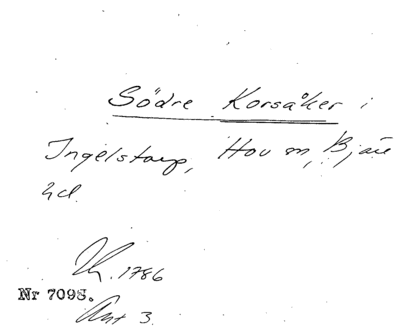 Södre Korsåker i
Ingelstorp, Hov sn, Bjäre
hd.
1786
Nr 7098.
Akt 3.